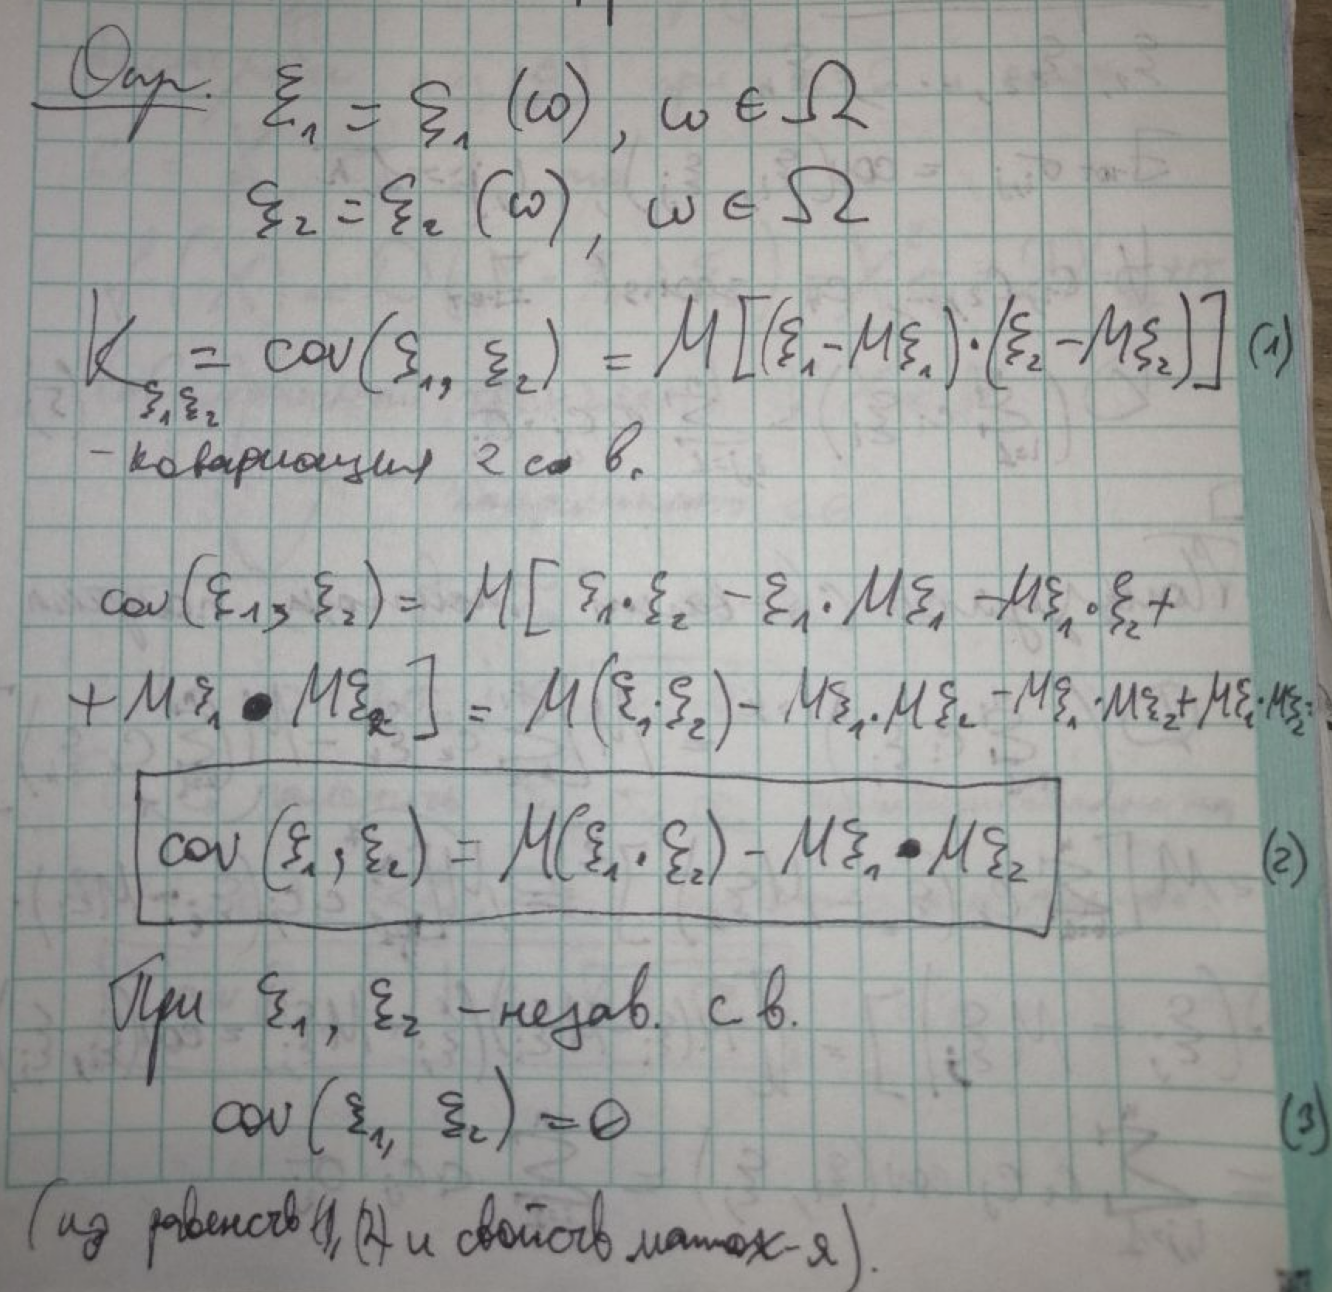 Опр. ξ₁ = ξ₁ (ω), ω ∈ Ω
ξ₂ = ξ₂ (ω), ω ∈ Ω
K_{ξ₁ξ₂} = cov(ξ₁, ξ₂) = M[(ξ₁-Mξ₁)·(ξ₂-Mξ₂)] (1)
- ковариация 2 с. в.
cov(ξ₁, ξ₂) = M[ ξ₁·ξ₂ - ξ₁·Mξ₁ - Mξ₁·ξ₂ +
+ Mξ₁ · Mξ₂ ] = M(ξ₁·ξ₂) - Mξ₁·Mξ₂ - Mξ₁·Mξ₂ + Mξ₁·Mξ₂
cov (ξ₁, ξ₂) = M(ξ₁·ξ₂) - Mξ₁ · Mξ₂ (2)
При ξ₁, ξ₂ - незав. с в.
cov(ξ₁, ξ₂) = 0 (3)
(из равенств (1), (2) и свойств матож-я).